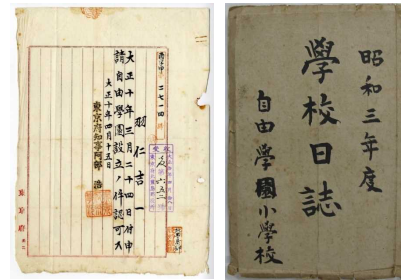 二七一四
羽仁吉一
大正十年三月二十四日付申
請自由學園設立ノ件認可ス
大正十年四月十五日
東京府知事阿部 浩
東京府
昭和三年度
學校日誌
自由學園小學校